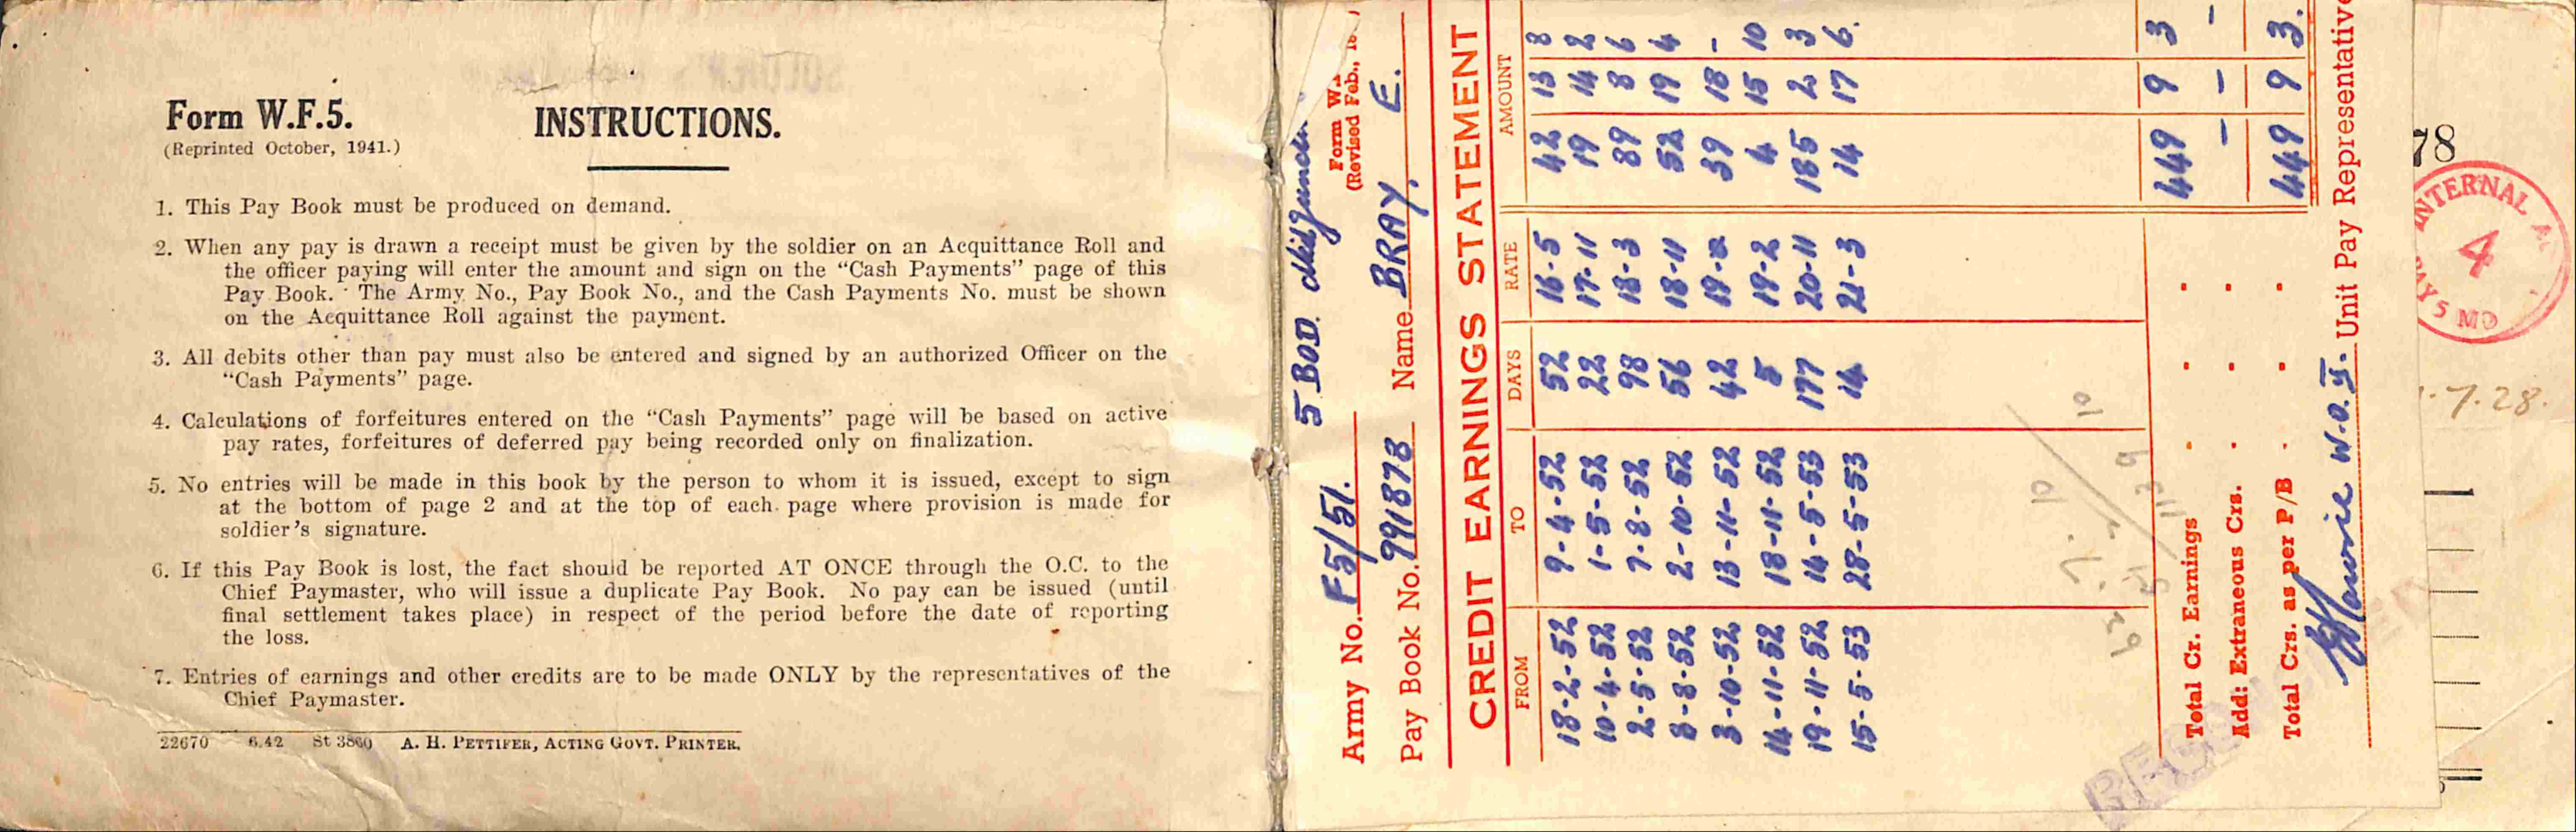 Form W.F.5.
(Reprinted October, 1941.)
INSTRUCTIONS.
1. This Pay Book must be produced on demand.
2. When any pay is drawn a receipt must be given by the soldier on an Acquittance Roll and
the officer paying will enter the amount and sign on the “Cash Payments” page of this
Pay Book. The Army No., Pay Book No., and the Cash Payments No. must be shown
on the Acquittance Roll against the payment.
3. All debits other than pay must also be entered and signed by an authorized Officer on the
“Cash Payments” page.
4. Calculations of forfeitures entered on the “Cash Payments” page will be based on active
pay rates, forfeitures of deferred pay being recorded only on finalization.
5. No entries will be made in this book by the person to whom it is issued, except to sign
at the bottom of page 2 and at the top of each page where provision is made for
soldier's signature.
6. If this Pay Book is lost, the fact should be reported AT ONCE through the O.C. to the
Chief Paymaster, who will issue a duplicate Pay Book. No pay can be issued (until
final settlement takes place) in respect of the period before the date of reporting
the loss.
7. Entries of earnings and other credits are to be made ONLY by the representatives of the
Chief Paymaster.
22670 6.42 St 3860 A. H. PETTIFER, ACTING GOVT. PRINTER.
5 BOD.
Form W.
(Revised Feb.,
Army No. F5/51.
Pay Book No. 991878 Name BRAY, E.
CREDIT EARNINGS STATEMENT
FROM TO DAYS RATE AMOUNT
18-2-52 9-4-52 52 16-5 42 13 8
10-4-52 1-5-52 22 17-11 19 14 2
2-5-52 7-8-52 98 18-3 89 8 6
8-8-52 2-10-52 56 18-11 52 19 4
3-10-52 13-11-52 42 19-0 39 18 -
14-11-52 18-11-52 5 19-2 4 15 10
19-11-52 14-5-53 177 20-11 185 2 3
15-5-53 28-5-53 14 21-3 14 17 6.
Total Cr. Earnings 449 9 3
Add: Extraneous Crs. - - -
Total Crs. as per P/B 449 9 3.
W.O. II. Unit Pay Representative
78
4
5 MD
7.28.